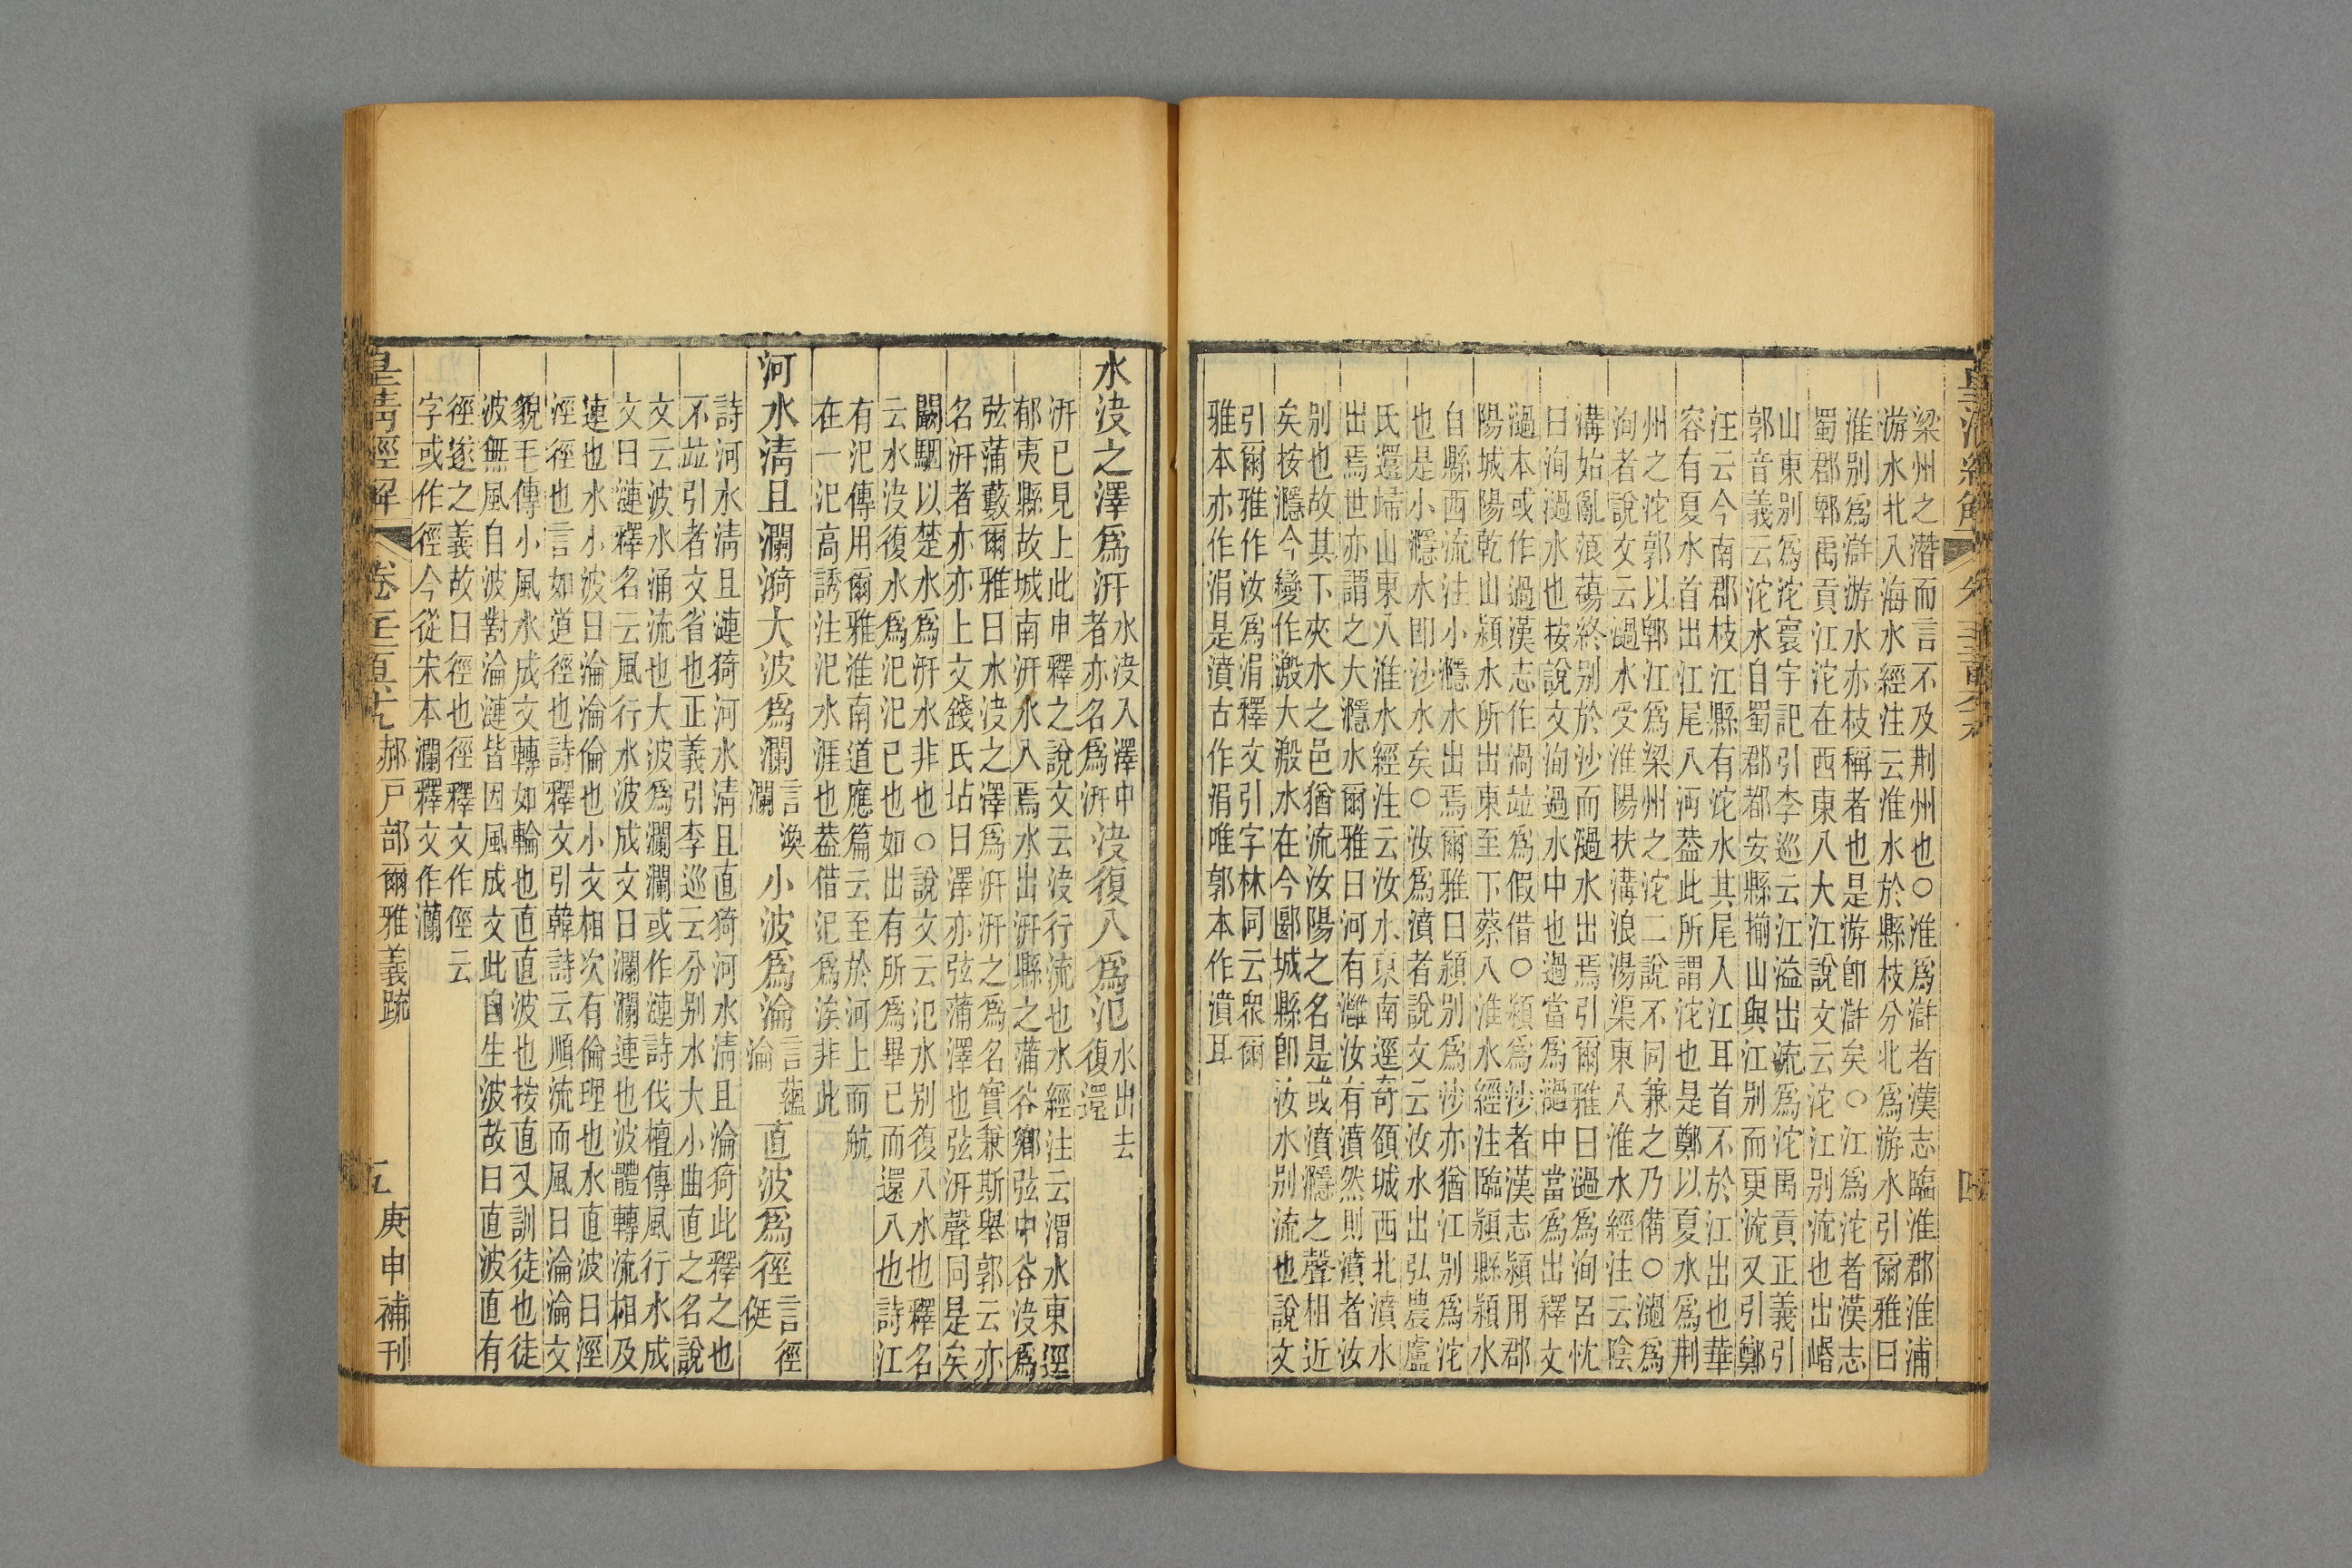 梁州之潛而言不及荆州也○淮爲滸者漢志臨淮郡淮浦
游水北入海水經注云淮水於縣枝分北爲游水引爾雅曰
淮别爲滸游水亦枝稱者也是游卽滸矣○江爲沱者漢志
蜀郡郫禹貢江沱在西東入大江說文云沱江别流也出㟭
山東别爲沱寰宇記引李巡云江溢出流爲沱禹貢正義引
郭音義云沱水自蜀郡都安縣揃山與江别而更流又引鄭
汪云今南郡枝江縣有沱水其尾入江耳首不於江出也華
容有夏水首出江尾入沔葢此所謂沱也是鄭以夏水爲荆
州之沱郭以郫江爲梁州之沱二說不同兼之乃備○濄爲
洵者說文云濄水受淮陽扶溝浪湯渠東入淮水經注云陰
溝始亂蒗蕩終别於沙而濄水出焉引爾雅曰濄爲洵呂忱
曰洵濄水也按說文洵過水中也過當爲濄中當爲出釋文
濄本或作過漢志作渦竝爲假借○潁爲沙者漢志潁用郡
陽城陽乾山潁水所出東至下蔡入淮水經注臨潁縣潁水
自縣西流注小㶏水出焉爾雅曰潁别爲沙亦猶江别爲沱
也是小㶏水卽沙水矣○汝爲濆者說文云汝水出弘農盧
氏還歸山東入淮水經注云汝水東南逕奇頟城西北濆水
出焉世亦謂之大㶏水爾雅曰河有灉汝有濆然則濆者汝
别也故其下夾水之邑猶流汝陽之名是或濆㶏之聲相近
矣按㶏今變作溵大溵水在今郾城縣卽汝水别流也說文
引爾雅作汝爲涓釋文引字林同云衆爾
雅本亦作涓是濆古作涓唯郭本作濆耳
水決之澤爲汧水決入澤中
者亦名爲汧決復入爲汜水出去
復還
汧已見上此申釋之說文云決行流也水經注云渭水東逕
郁夷縣故城南汧水入焉水出汧縣之蒲谷鄉弦中谷決爲
弦蒲藪爾雅曰水決之澤爲汧汧之爲名實兼斯舉郭云亦
名汧者亦亦上文錢氏坫曰澤亦弦蒲澤也弦汧聲同是矣
闞駰以楚水爲汧水非也○說文云汜水别復入水也釋名
云水決復水爲汜汜已也如出有所爲畢已而還入也詩江
有汜傳用爾雅淮南道應篇云至於河上而航
在一汜高誘注汜水涯也葢借汜爲涘非此
河水清且瀾漪大波爲瀾言渙
瀾小波爲淪言蘊
淪直波爲徑言徑
侹
詩河水清且漣猗河水清且直猗河水清且淪猗此釋之也
不竝引者文省也正義引李巡云分别水大小曲直之名說
文云波水涌流也大波爲瀾瀾或作漣詩伐檀傳風行水成
文曰漣釋名云風行水波成文曰瀾瀾連也波體轉流相及
連也水小波曰淪淪倫也小文相次有倫理也水直波曰涇
涇徑也言如道徑也詩釋文引韓詩云順流而風曰淪淪文
貌毛傳小風水成文轉如輪也直直波也按直又訓徒也徒
波無風自波對淪漣皆因風成文此自生波故曰直波直有
徑遂之義故曰徑也徑釋文作俓云
字或作徑今從宋本瀾釋文作灡
皇清經解 卷 郝戸部爾雅義疏 五 庚申補刊